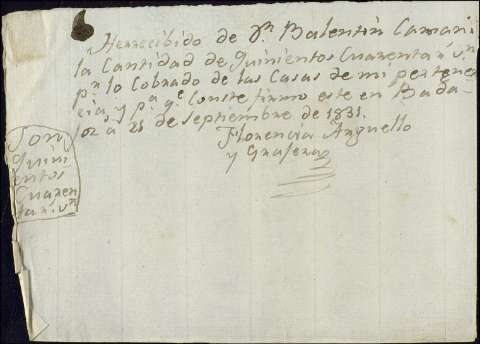 He rrecibido de Dn. Balentin Camari
la Cantidad de quinientos Cuarenta rs. vn.
pr. lo Cobrado de las Casas de mi pertenen
cia, y pa. qe. Conste firmo este en Bada
joz a 25 de Septiembre de 1831.
Florencia Arguello
y Grajera
Son
quini
entos
Cuaren
ta rs. vn.